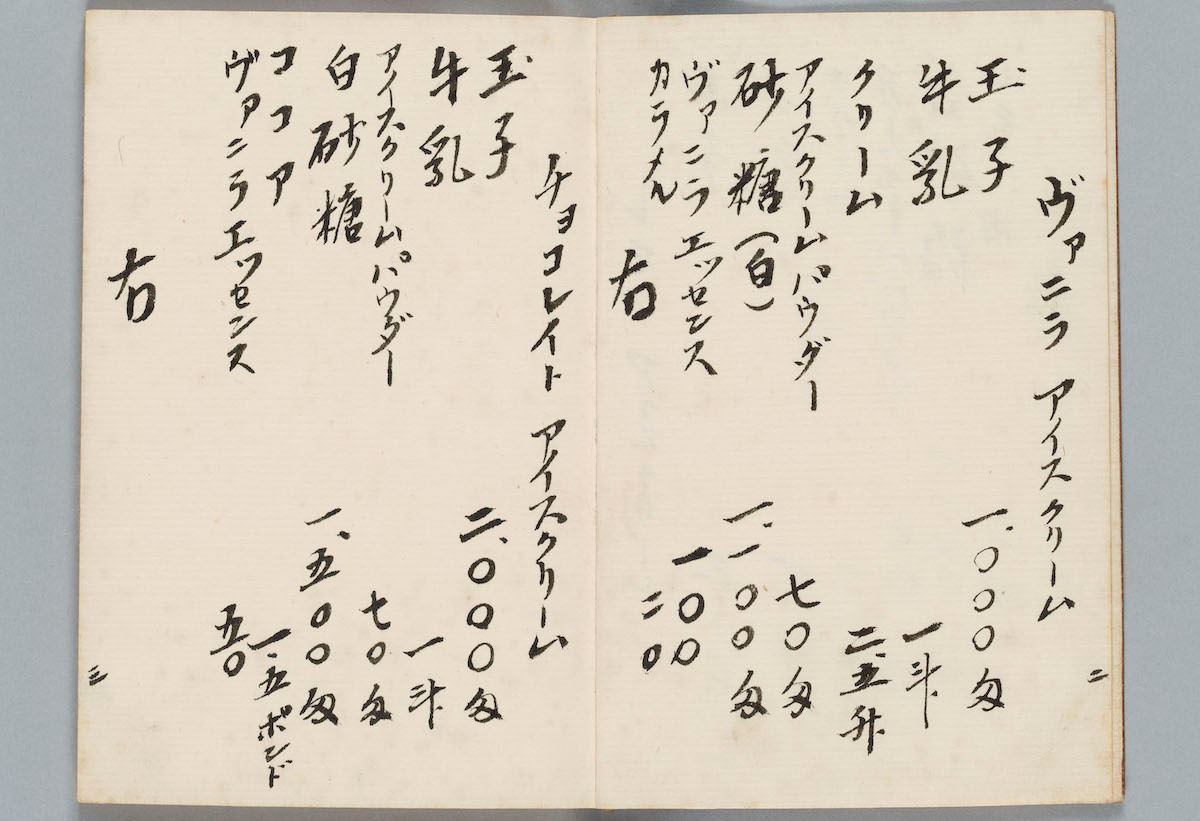 ヴァニラ アイスクリーム
玉子 一、〇〇〇匁
牛乳 一斗
クリーム 二、五升
アイスクリームパウダー 七〇匁
砂糖（白） 一、一〇〇匁
ヴァニラエッセンス 一〇〇
カラメル 二〇
右
二
チョコレイト アイスクリーム
玉子 二、〇〇〇匁
牛乳 一斗
アイスクリームパウダー 七〇匁
白砂糖 一、五〇〇匁
ココア 一、五ポンド
ヴァニラエッセンス 五〇
右
三